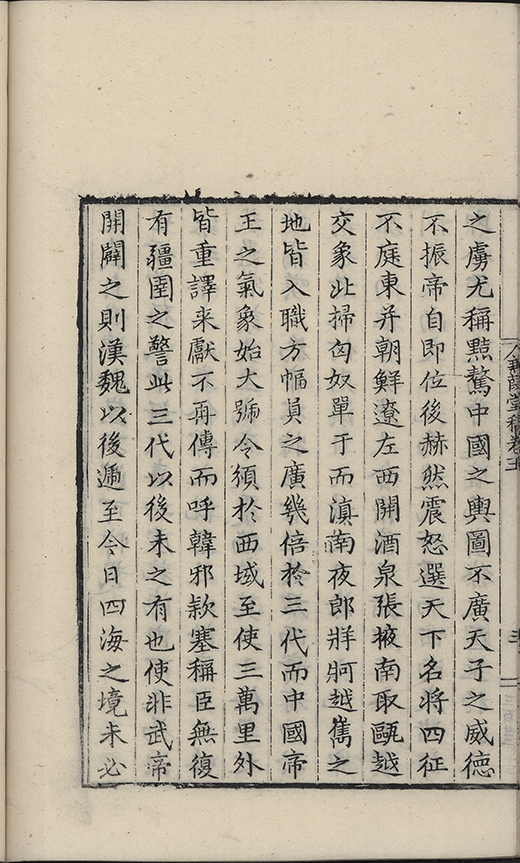 之虜尤稱黠驁中國之輿圖不廣天子之威德
不振帝自即位後赫然震怒選天下名將四征
不庭東并朝鮮遼左西開酒泉張掖南取甌越
交象北掃匈奴單于而滇南夜郎牂牁越嶲之
地皆入職方幅員之廣幾倍於三代而中國帝
王之氣象始大號令頒於西域至使三萬里外
皆重譯来獻不再傳而呼韓邪款塞稱臣無復
有疆圉之警此三代以後未之有也使非武帝
開闢之則漢魏以後逓至今日四海之境未必